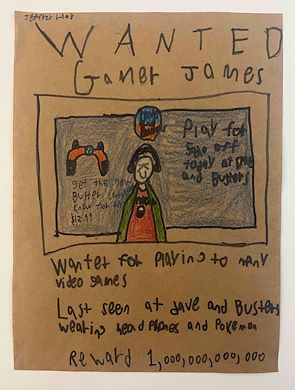 WANTED
Gamer James
Play for
off
today at
and Busters
get the new
Buster
for
$12.99
Wantet for Playing to many
video games
Last seen at dave and Busters
weating head Phones and Pokemon
Reward 1,000,000,000,000